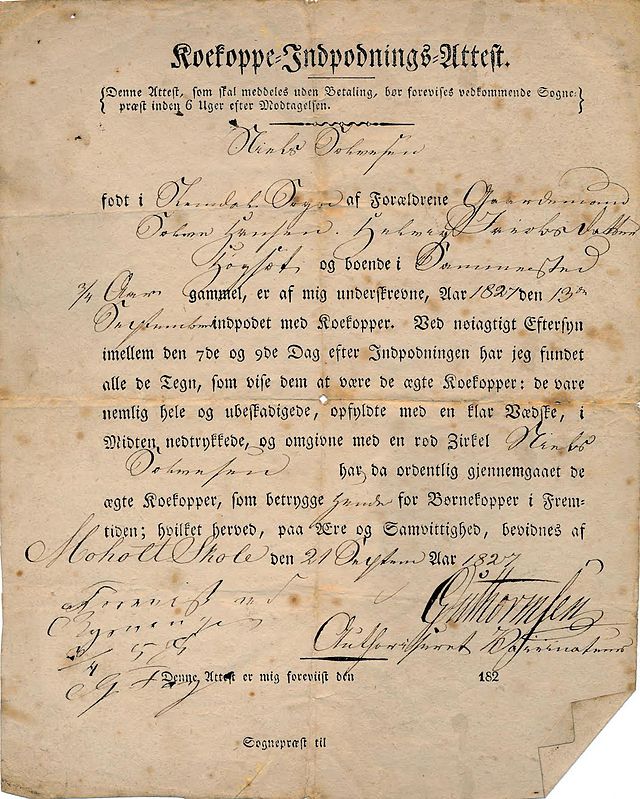 Koekoppe-Indpodnings-Attest.
Denne Attest, som skal meddeles uden Betaling, bør forevises vedkommende Sogne-
præst inden 6 Uger efter Modtagelsen.
Niels Solvesen
født i Slemdal Sogn af Forældrene Gaardemand
Solve Hansen. Helvig Jacobsdatter
Høysæt og boende i Sammested
3/4 Aar gammel, er af mig underskrevne, Aar 1827 den 13de
September indpodet med Koekopper. Ved nøiagtigt Eftersyn
imellem den 7de og 9de Dag efter Indpodningen har jeg fundet
alle de Tegn, som vise dem at være de ægte Koekopper: de vare
nemlig hele og ubeskadigede, opfyldte med en klar Vædske, i
Midten nedtrykkede, og omgivne med en rød Zirkel Niels
Solvesen har da ordentlig gjennemgaaet de
ægte Koekopper, som betrygge hende for Børnekopper i Frem-
tiden; hvilket herved, paa Ære og Samvittighed, bevidnes af
Moholt Skole den 21 Septem Aar 1827
Guthormsen
Authorisseret Vaccinateur
Forevist ved
Denne Attest er mig foreviist den 182
Sognepræst til